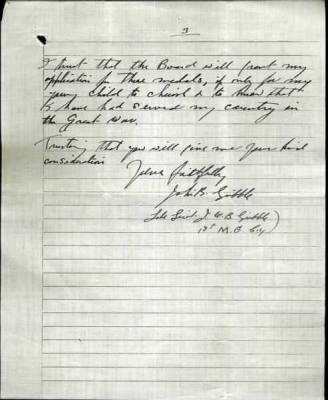 3
I trust that the Board will grant my
application for these medals, if only for my
young child to cherish & to know that
I have had served my country in
the Great War.
Trusting that you will give me your kind
consideration
Yours faithfully
John B. Gribble
Late Lieut J. H. B. Gribble)
13th M. G. Coy